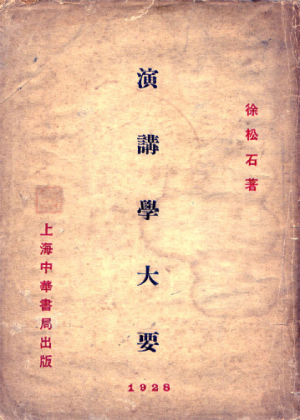 徐松石著
演講學大要
上海中華書局出版
1928